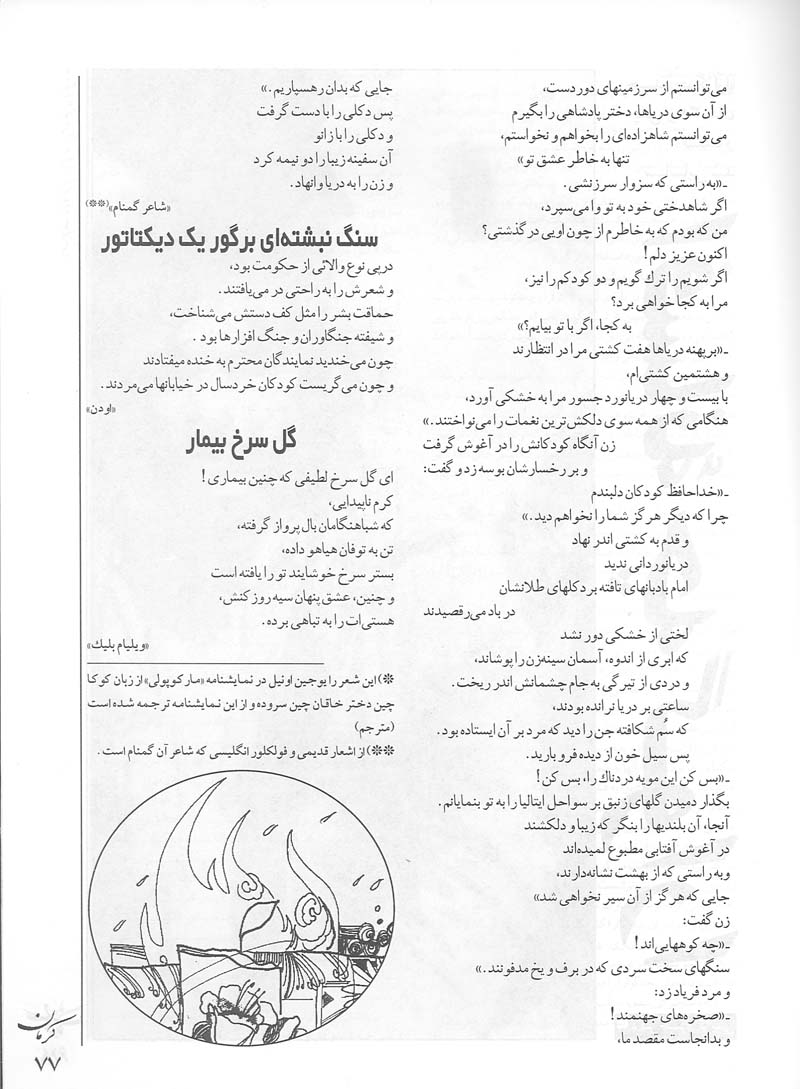 می‌توانستم از سرزمینهای دوردست،
از آن سوی دریاها، دختر پادشاهی را بگیرم
می‌توانستم شاهزاده‌ای را بخواهم و نخواستم،
تنها به خاطر عشق تو»
ـ«به راستی که سزوار سرزنشی.
اگر شاهدختی خود به تو وا می‌سپرد،
من که بودم که به خاطرم از چون اویی در گذشتی؟
اکنون عزیز دلم!
اگر شویم را ترك گویم و دو کودکم را نیز،
مرا به کجا خواهی برد؟
به کجا، اگر با تو بیایم؟»
ـ«بر پهنه دریاها هفت کشتی مرا در انتظارند
و هشتمین کشتی‌ام،
با بیست و چهار دریانورد جسور مرا به خشکی آورد،
هنگامی که از همه سوی دلکش‌ترین نغمات را می‌نواختند.»
زن آنگاه کودکانش را در آغوش گرفت
و بر رخسارشان بوسه زد و گفت:
ـ«خداحافظ کودکان دلبندم
چرا که دیگر هرگز شما را نخواهم دید.»
و قدم به کشتی اندر نهاد
دریانوردانی ندید
امام بادبانهای تافته بر دکلهای طلانشان
در باد می‌رقصیدند
لختی از خشکی دور نشد
که ابری از اندوه، آسمان سینه‌زن را پوشاند،
و دردی از تیرگی به جام چشمانش اندر ریخت.
ساعتی بر دریا نرانده بودند،
که سُم شکافته جن را دید که مرد بر آن ایستاده بود.
پس سیل خون از دیده فرو بارید.
ـ«بس کن این مویه دردناك را، بس کن!
بگذار دمیدن گلهای زنبق بر سواحل ایتالیا را به تو بنمایانم.
آنجا، آن بلندیها را بنگر که زیبا و دلکشند
در آغوش آفتابی مطبوع لمیده‌اند
وبه راستی که از بهشت نشانه‌دارند،
جایی که هرگز از آن سیر نخواهی شد»
زن گفت:
ـ«چه کوههایی‌اند!
سنگهای سخت سردی که در برف و یخ مدفونند.»
و مرد فریاد زد:
ـ«صخره‌های جهنمند!
و بدانجاست مقصد ما،
جایی که بدان رهسپاریم.»
پس دکلی را با دست گرفت
و دکلی را با زانو
آن سفینه زیبا را دو نیمه کرد
و زن را به دریا وانهاد.
«شاعر گمنام»(**)
سنگ نبشته‌ای بر گور یک دیکتاتور
درپی نوع والائی از حکومت بود،
و شعرش را به راحتی در می‌یافتند.
حماقت بشر را مثل کف دستش می‌شناخت،
و شیفته جنگاوران و جنگ افزارها بود.
چون می‌خندید نمایندگان محترم به خنده میفتادند
و چون می‌گریست کودکان خردسال در خیابانها می‌مردند.
«اودن»
گل سرخ بیمار
ای گل سرخ لطیفی که چنین بیماری!
کرم ناپیدایی،
که شباهنگامان بال پرواز گرفته،
تن به توفان هیاهو داده،
بستر سرخ خوشایند تو را یافته است
و چنین، عشق پنهان سیه روز کنش،
هستی‌ات را به تباهی برده.
«ویلیام بلیك»
*) این شعر را یوجین اونیل در نمایشنامه «مارکوپولی» از زبان کوکا
چین دختر خاقان چین سروده و از این نمایشنامه ترجمه شده است
(مترجم)
**) از اشعار قدیمی و فولکلور انگلیسی که شاعر آن گمنام است.
کرمان
۷۷